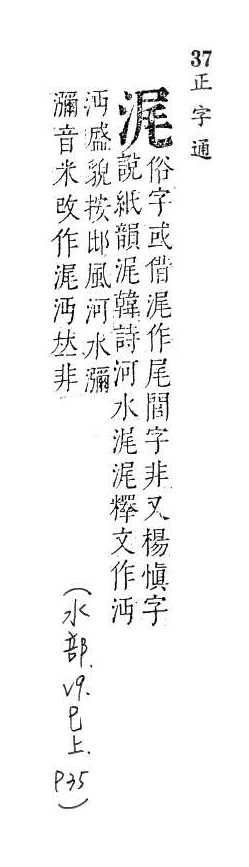 37正字通
浘
俗字或借浘作尾閭字非又楊愼字
說紙韻浘韓詩河水浘浘釋文作沔
沔盛貌按邶風河水瀰
瀰音米改作浘沔𠀤非
(水部.V9.巳上.P35)